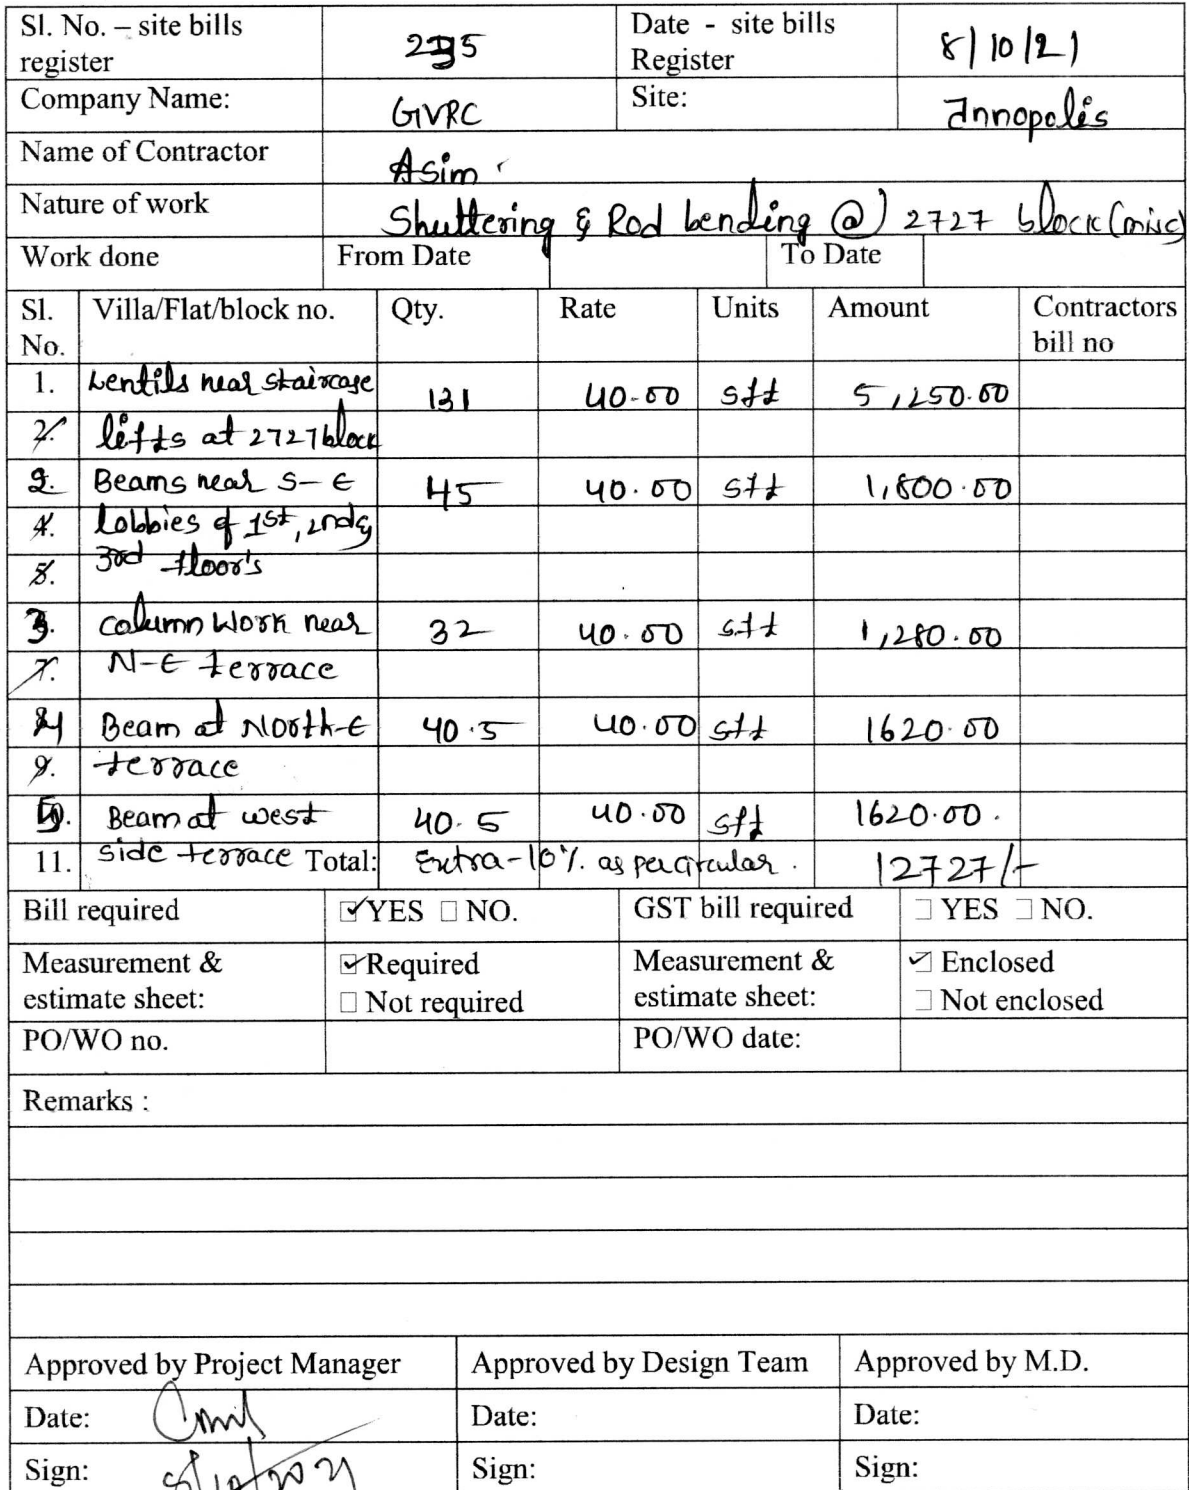 Sl. No. – site bills register 295 Date - site bills Register 8/10/21
Company Name: GVRC Site: Innopolis
Name of Contractor Asim
Nature of work Shuttering & Rod bending @ 2727 block (misc)
Work done From Date To Date
Sl. No. Villa/Flat/block no. Qty. Rate Units Amount Contractors bill no
1. Lentils near staircase 131 40.00 sft 5,250.00
2. lifts at 2727 block
2. Beams near S-E 45 40.00 sft 1,800.00
4. lobbies of 1st, 2nd &
5. 3rd floor's
3. column work near 32 40.00 sft 1,280.00
7. N-E terrace
4 Beam at North-E 40.5 40.00 sft 1620.00
9. terrace
5. Beam at west 40.5 40.00 sft 1620.00.
11. side terrace Total: Extra-10% as per circular. 12727/-
Bill required ☑YES □ NO. GST bill required □ YES □ NO.
Measurement & estimate sheet: ☑Required □ Not required Measurement & estimate sheet: ☑ Enclosed □ Not enclosed
PO/WO no. PO/WO date:
Remarks :
Approved by Project Manager Approved by Design Team Approved by M.D.
Date: Date: Date:
Sign: 8/10/2021 Sign: Sign: